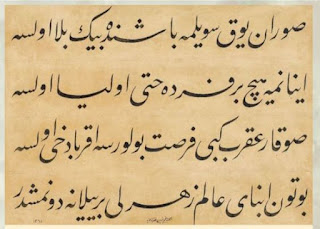 صوران یوق سویلمه باشنده بیک بلا اولسه
اینانمه هیچ بر فرده حتی اولیا اولسه
صوقار عقرب کبی فرصت بولورسه اقربا دخی اولسه
بوتون ابنای عالم زهرلی بر ییلانه دونمشدر